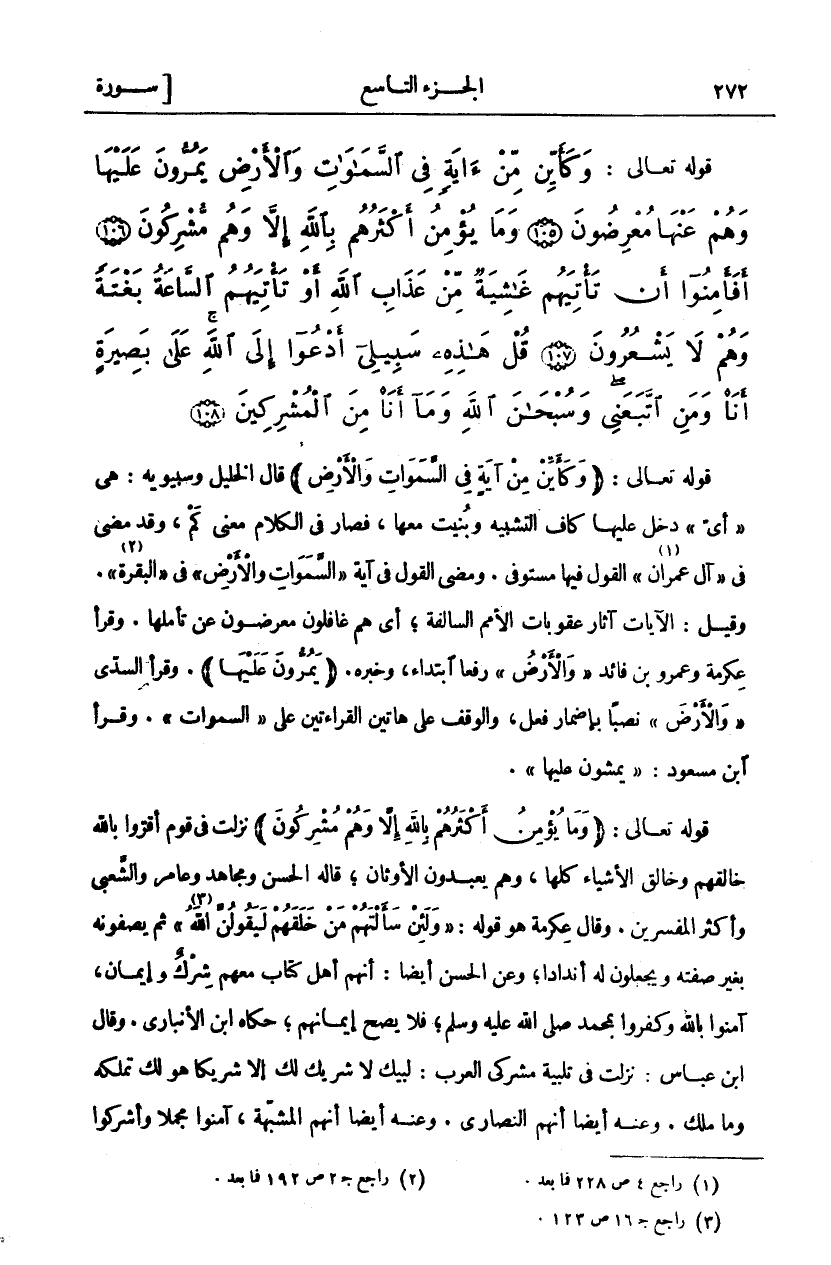 ٢٧٢ الجزء التاسع [ سورة
قوله تعالى : وَكَأَيِّن مِّنْ ءَايَةٍ فِي ٱلسَّمَٰوَٰتِ وَٱلْأَرْضِ يَمُرُّونَ عَلَيْهَا
وَهُمْ عَنْهَا مُعْرِضُونَ ١٠٥ وَمَا يُؤْمِنُ أَكْثَرُهُم بِٱللَّهِ إِلَّا وَهُم مُّشْرِكُونَ ١٠٦
أَفَأَمِنُوٓا۟ أَن تَأْتِيَهُمْ غَٰشِيَةٌ مِّنْ عَذَابِ ٱللَّهِ أَوْ تَأْتِيَهُمُ ٱلسَّاعَةُ بَغْتَةً
وَهُمْ لَا يَشْعُرُونَ ١٠٧ قُلْ هَٰذِهِۦ سَبِيلِيٓ أَدْعُوٓا۟ إِلَى ٱللَّهِ ۚ عَلَىٰ بَصِيرَةٍ
أَنَا۠ وَمَنِ ٱتَّبَعَنِي ۖ وَسُبْحَٰنَ ٱللَّهِ وَمَآ أَنَا۠ مِنَ ٱلْمُشْرِكِينَ ١٠٨
قوله تعالى : ﴿ وَكَأَيِّنْ مِنْ آيَةٍ فِي السَّمَوَاتِ وَالْأَرْضِ ﴾ قال الخليل وسيبويه : هى
« أىّ » دخل عليها كاف التشبيه وبُنيت معها ، فصار فى الكلام معنى كَمْ ، وقد مضى
فى « آل عمران » (١) القول فيها مستوفى . ومضى القول فى آية « السَّمَوَاتِ والْأَرْضِ » فى « البقرة » (٢) .
وقيل : الآيات آثار عقوبات الأمم السالفة ؛ أى هم غافلون معرضون عن تأملها . وقرأ
عكرمة وعمرو بن فائد « وَالْأَرْضُ » رفعا ٱبتداء، وخبره . ﴿ يَمُرُّونَ عَلَيْهَا ﴾ . وقرأ السدّى
« وَالْأَرْضَ » نصبًا بإضمار فعل، والوقف على هاتين القراءتين على « السموات » . وقرأ
ٱبن مسعود : « يمشون عليها » .
قوله تعالى : ﴿ وَمَا يُؤْمِنُ أَكْثَرُهُمْ بِاللهِ إِلَّا وَهُمْ مُشْرِكُونَ ﴾ نزلت فى قوم أقرّوا بالله
خالقهم وخالق الأشياء كلها ، وهم يعبدون الأوثان ؛ قاله الحسن ومجاهد وعامر والشَّعبى
وأكثر المفسرين . وقال عِكرمة هو قوله : « وَلَئِنْ سَأَلْتَهُمْ مَنْ خَلَقَهُمْ لَيَقُولُنَّ اللهُ » (٣) ثم يصفونه
بغير صفته ويجعلون له أندادا؛ وعن الحسن أيضا : أنهم أهل كتاب معهم شِرْكٌ وإيمان،
آمنوا بالله وكفروا بمحمد صلى الله عليه وسلم؛ فلا يصح إيمانهم ؛ حكاه ابن الأنبارى . وقال
ابن عباس : نزلت فى تلبية مشركى العرب : لبيك لا شريك لك إلا شريكا هو لك تملكه
وما ملك . وعنه أيضا أنهم النصارى . وعنه أيضا أنهم المشبِّهة ، آمنوا مجملا وأشركوا
(١) راجع ٤ ص ٢٢٨ فما بعد . (٢) راجع ج ٢ ص ١٩٢ فما بعد .
(٣) راجع ج ١٦ ص ١٢٣ .